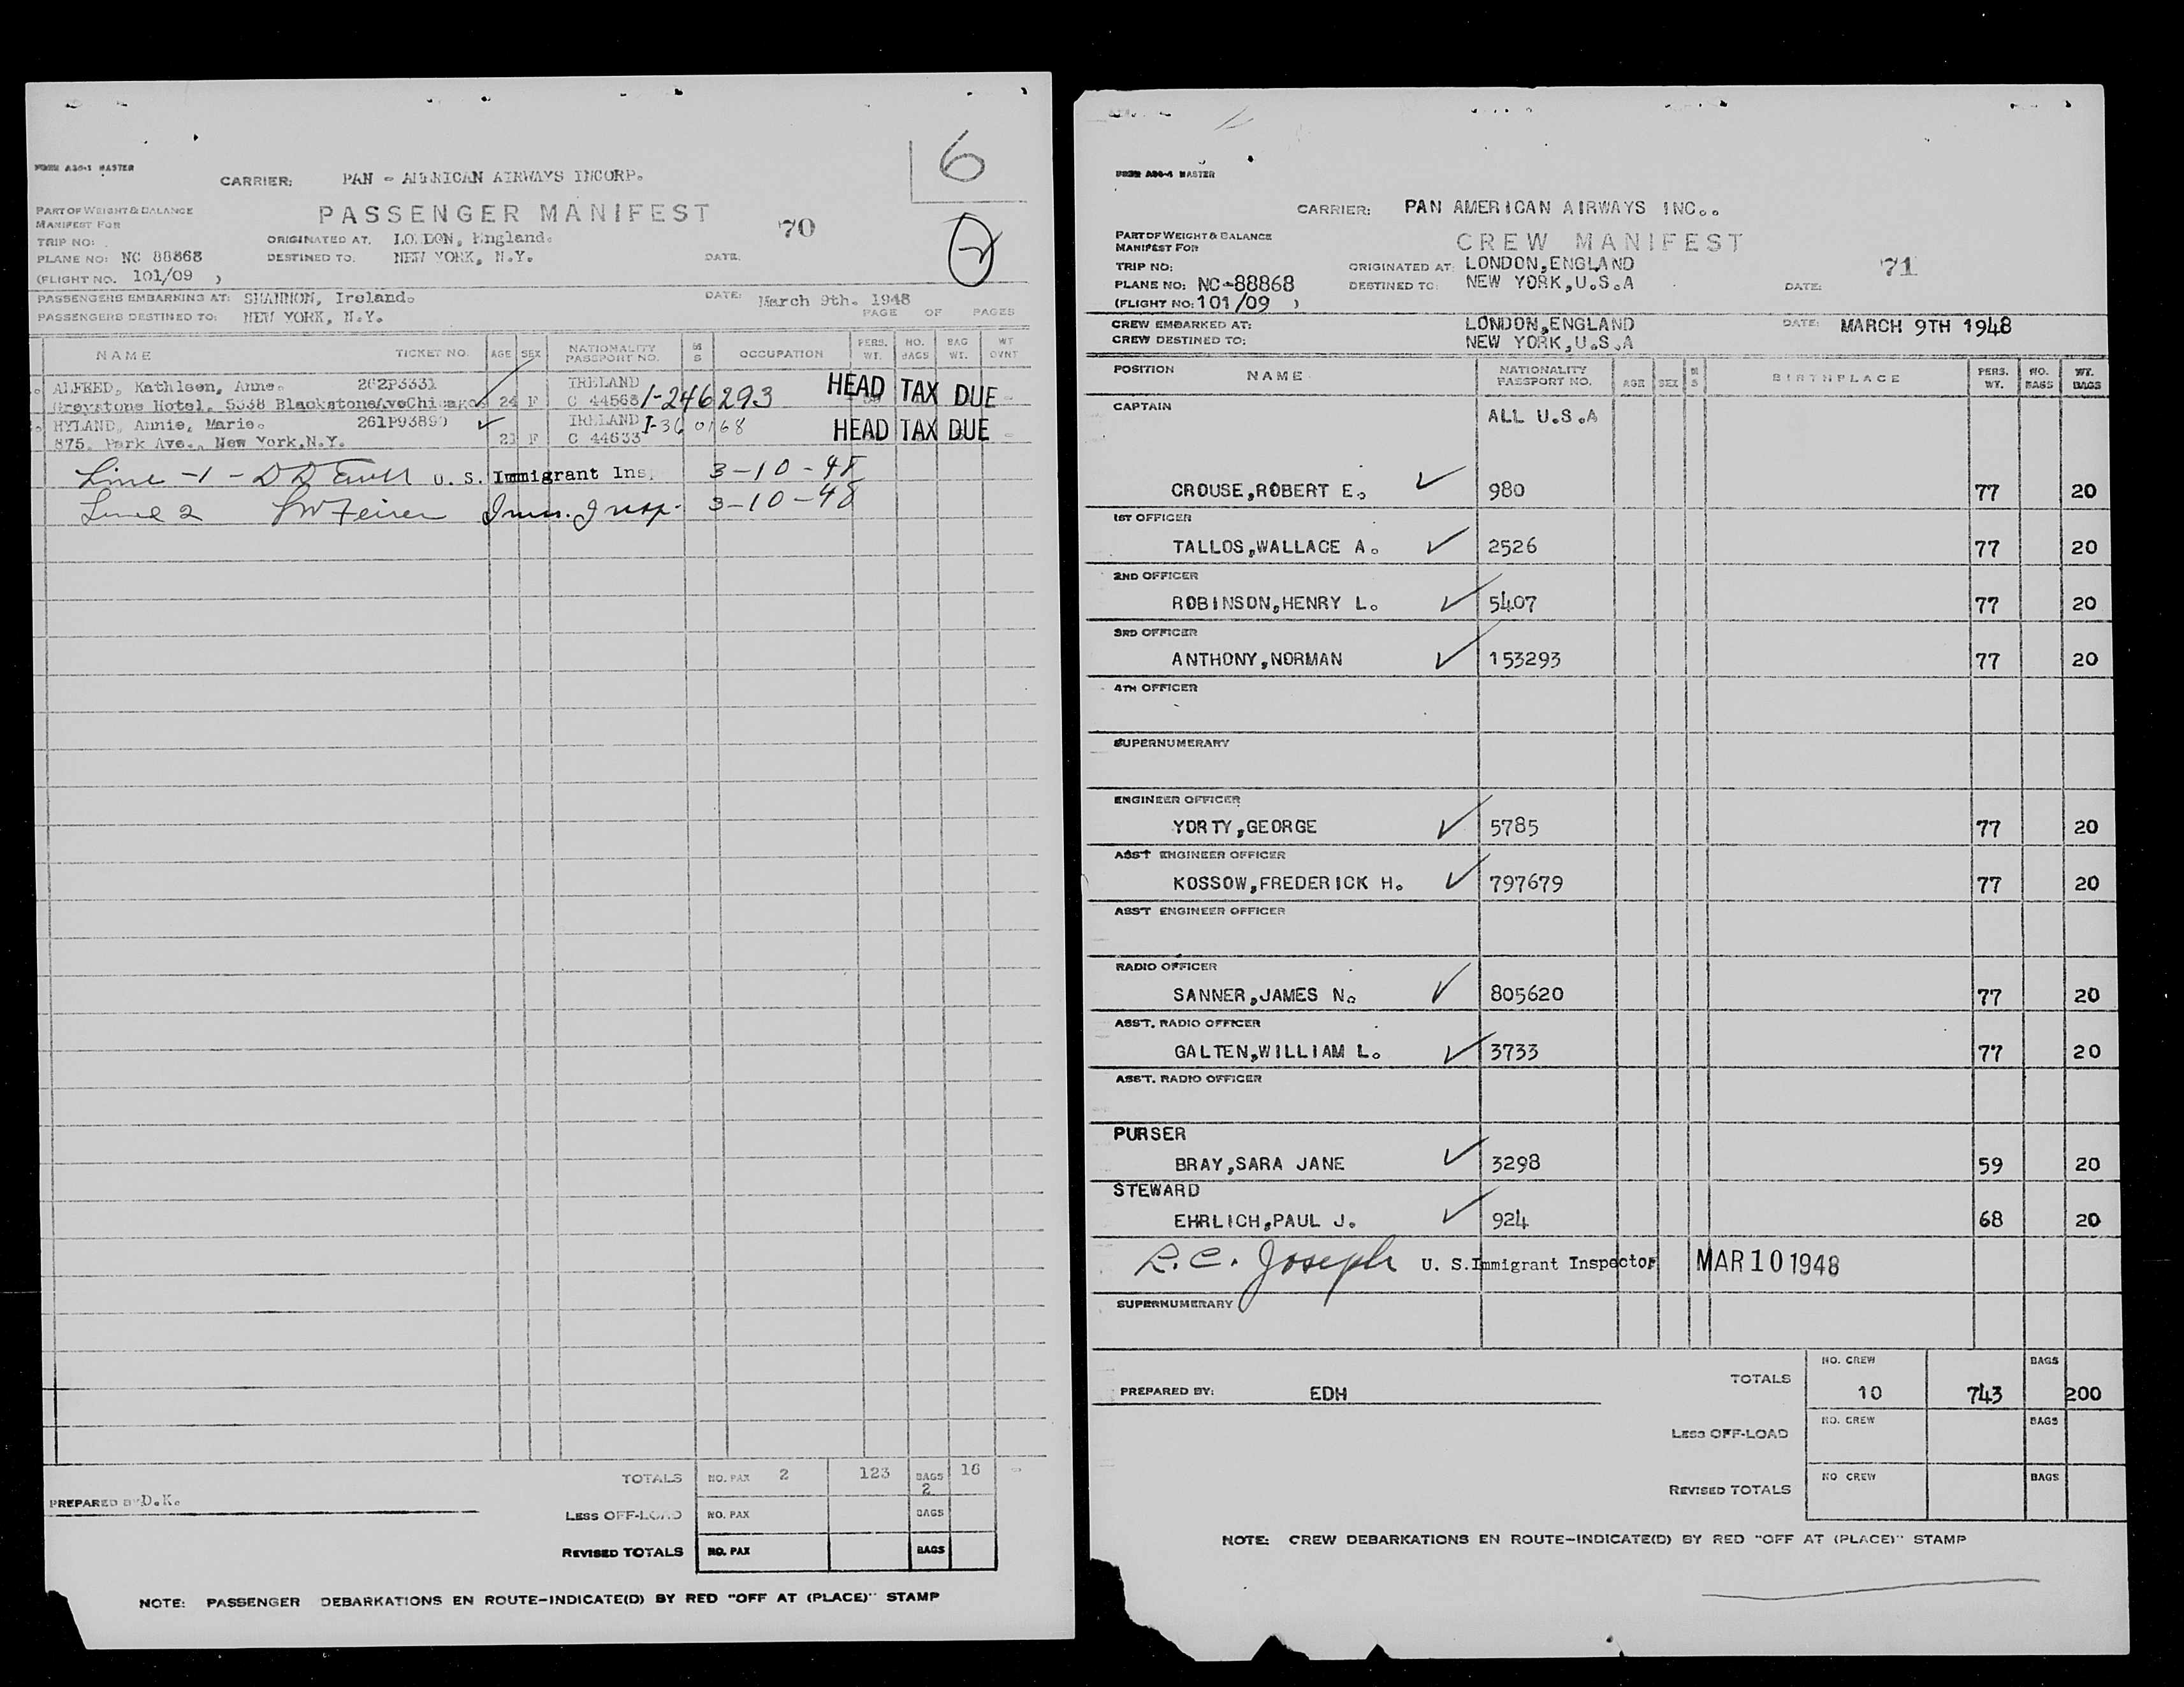 FORM A86-1 MASTER
6
CARRIER: PAN - AMERICAN AIRWAYS INCORP.
PART OF WEIGHT & BALANCE
MANIFEST FOR
PASSENGER MANIFEST
70
2
TRIP NO:
ORIGINATED AT. LONDON, England.
PLANE NO: NC 88868
DESTINED TO. NEW YORK, N.Y.
DATE.
(FLIGHT NO. 101/09 )
PASSENGERS EMBARKING AT: SHANNON, Ireland.
DATE: March 9th. 1948
PASSENGERS DESTINED TO: NEW YORK, N.Y.
PAGE OF PAGES
NAME TICKET NO. AGE SEX NATIONALITY PASSPORT NO. M S OCCUPATION PERS. WT. NO. BAGS BAG WT. WT OVNT
ALFRED, Kathleen, Anne. 262P3331 IRELAND HEAD TAX DUE
Greystone Hotel. 5338 BlackstoneAveChicago. 24 F C 44568 1-246293
HYLAND, Annie, Marie. 261P93890 IRELAND I-360168
875. Park Ave., New York,N.Y. 21 F C 44633 HEAD TAX DUE
Line -1 - U. S. Immigrant Ins. 3-10-48
Line 2 Imm. Insp. 3-10-48
TOTALS NO. PAX 2 123 BAGS 2 16
PREPARED BY D.K.
LESS OFF-LOAD NO. PAX BAGS
REVISED TOTALS NO. PAX BAGS
NOTE: PASSENGER DEBARKATIONS EN ROUTE-INDICATE(D) BY RED "OFF AT (PLACE)" STAMP
FORM A86-4 MASTER
CARRIER: PAN AMERICAN AIRWAYS INC..
PART OF WEIGHT & BALANCE
MANIFEST FOR
CREW MANIFEST
71
TRIP NO:
ORIGINATED AT: LONDON,ENGLAND
PLANE NO: NC-88868
DESTINED TO: NEW YORK,U.S.A
DATE:
(FLIGHT NO: 101/09 )
CREW EMBARKED AT: LONDON,ENGLAND
DATE: MARCH 9TH 1948
CREW DESTINED TO: NEW YORK,U.S.A
POSITION NAME NATIONALITY PASSPORT NO. AGE SEX M S BIRTHPLACE PERS. WT. NO. BAGS WT. BAGS
CAPTAIN ALL U.S.A
CROUSE,ROBERT E. 980 77 20
1ST OFFICER
TALLOS,WALLACE A. 2526 77 20
2ND OFFICER
ROBINSON,HENRY L. 5407 77 20
3RD OFFICER
ANTHONY,NORMAN 153293 77 20
4TH OFFICER
SUPERNUMERARY
ENGINEER OFFICER
YORTY,GEORGE 5785 77 20
ASST ENGINEER OFFICER
KOSSOW,FREDERICK H. 797679 77 20
ASST ENGINEER OFFICER
RADIO OFFICER
SANNER,JAMES N. 805620 77 20
ASST. RADIO OFFICER
GALTEN,WILLIAM L. 3733 77 20
ASST. RADIO OFFICER
PURSER
BRAY,SARA JANE 3298 59 20
STEWARD
EHRLICH,PAUL J. 924 68 20
R.C. Joseph U. S. Immigrant Inspector MAR 10 1948
SUPERNUMERARY
TOTALS NO. CREW 10 743 BAGS 200
PREPARED BY: EDH
LESS OFF-LOAD NO. CREW BAGS
REVISED TOTALS NO CREW BAGS
NOTE: CREW DEBARKATIONS EN ROUTE-INDICATE(D) BY RED "OFF AT (PLACE)" STAMP